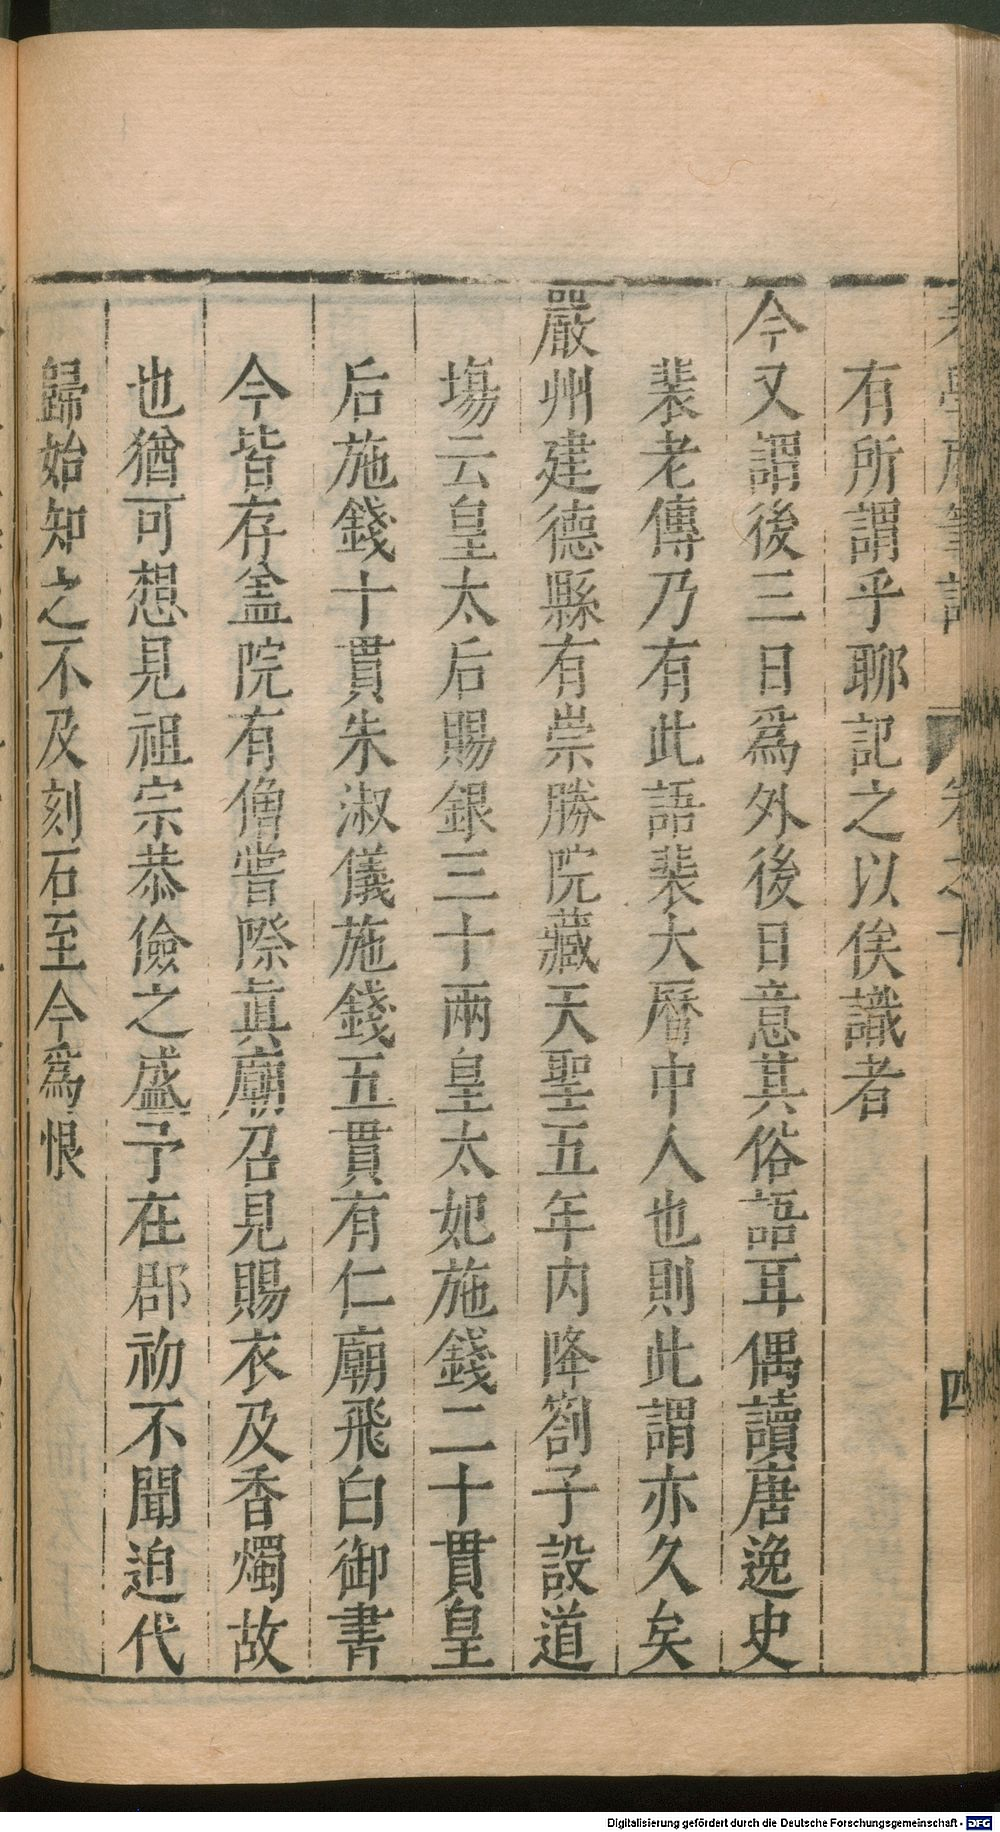 有所謂乎聊記之以俟識者
今又謂後三日爲外後日意其俗語耳偶讀唐逸史
裴老傳乃有此語裴大曆中人也則此謂亦久矣
嚴州建德縣有崇勝院藏天聖五年内降劄子設道
塲云皇太后賜銀三十兩皇太妃施錢二十貫皇
后施錢十貫朱淑儀施錢五貫有仁廟飛白御書
今皆存盖院有僧嘗際眞廟召見賜衣及香燭故
也猶可想見祖宗恭儉之盛予在郡初不聞迨代
歸始知之不及刻石至今爲恨
四
Digitalisierung gefördert durch die Deutsche Forschungsgemeinschaft - DFG